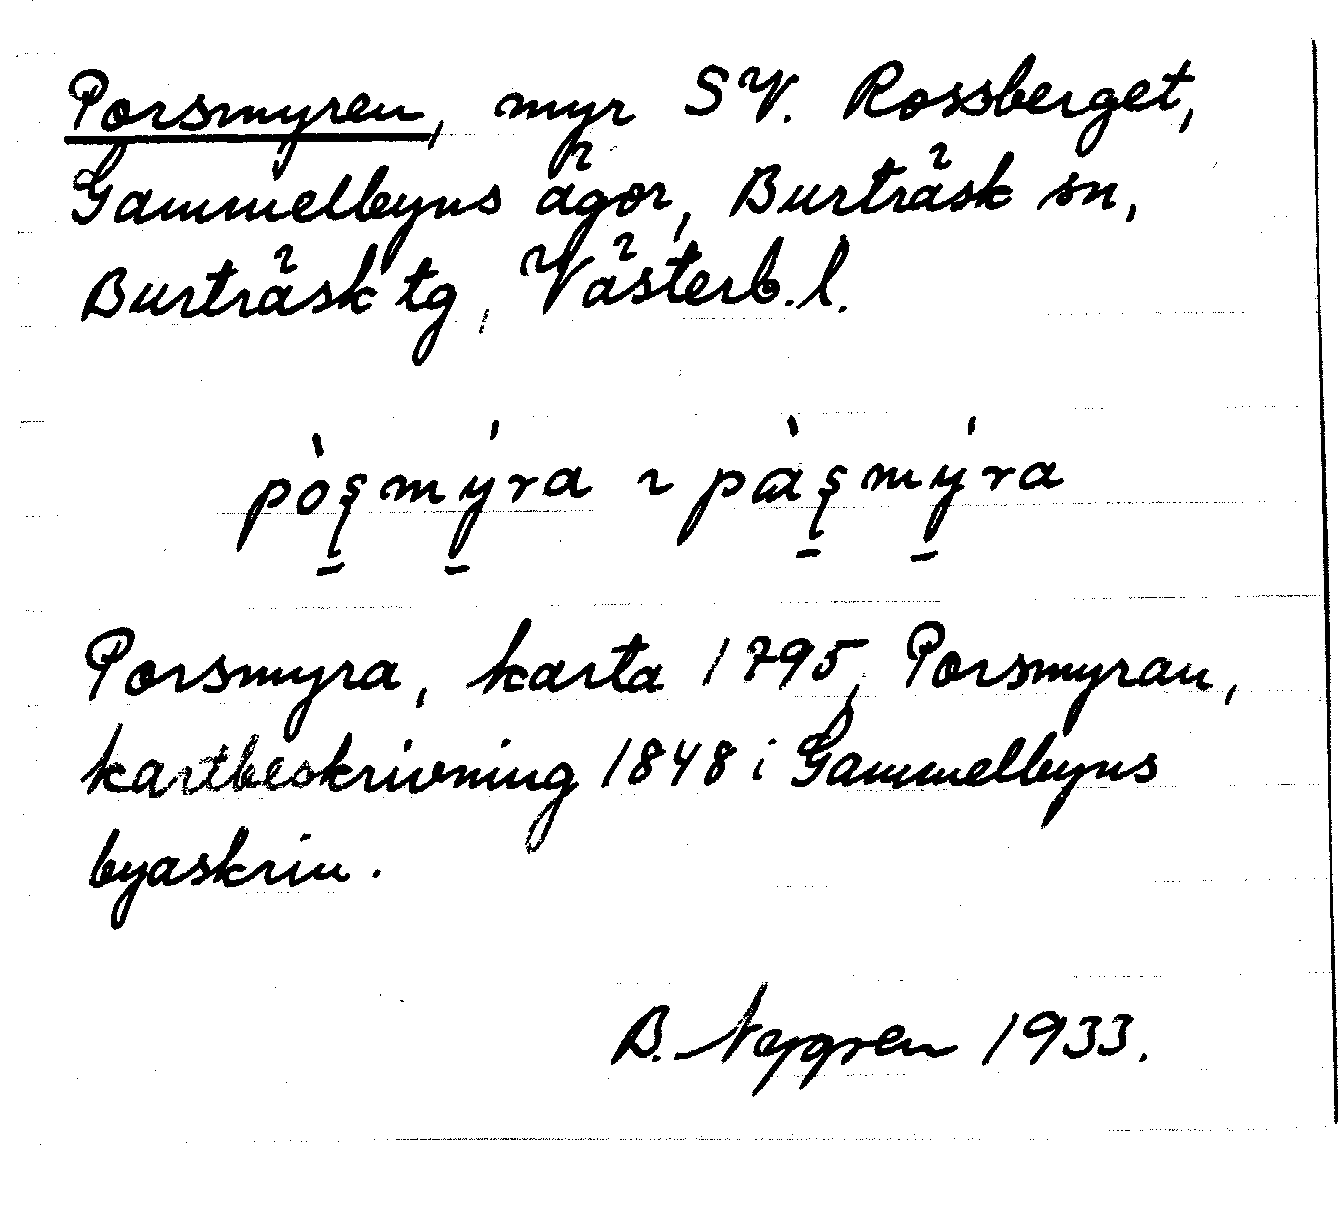 Porsmyren, myr SV. Rossberget,
Gammelbyns ägor, Burträsk sn,
Burträsk tg, Västerb. l.
pòʂmýra ~ pàʂmýra
Porsmyra, karta 1795, Porsmyran,
kartbeskrivning 1848 i Gammelbyns
byaskrin.
B. Nygren 1933.